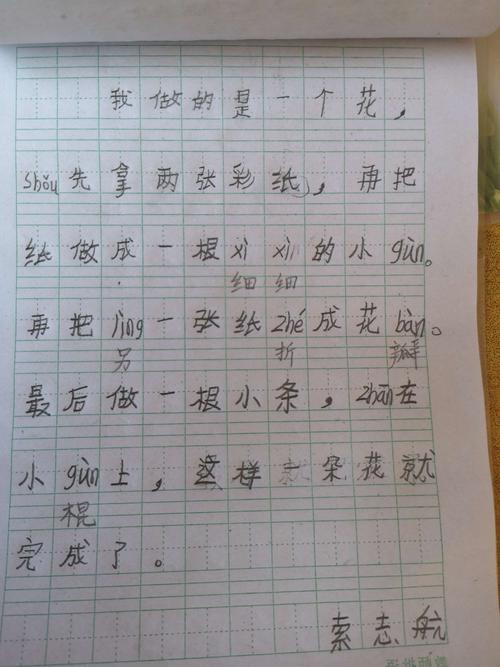 我做的是一个花，
shǒu先拿两张彩纸，再把
纸做成一根xì xì的小gùn。
细细
再把lìng一张纸zhé成花bàn。
另 折 瓣
最后做一根小条，zhān在
小gùn上，这样一朵花就
棍
完成了。
索志航